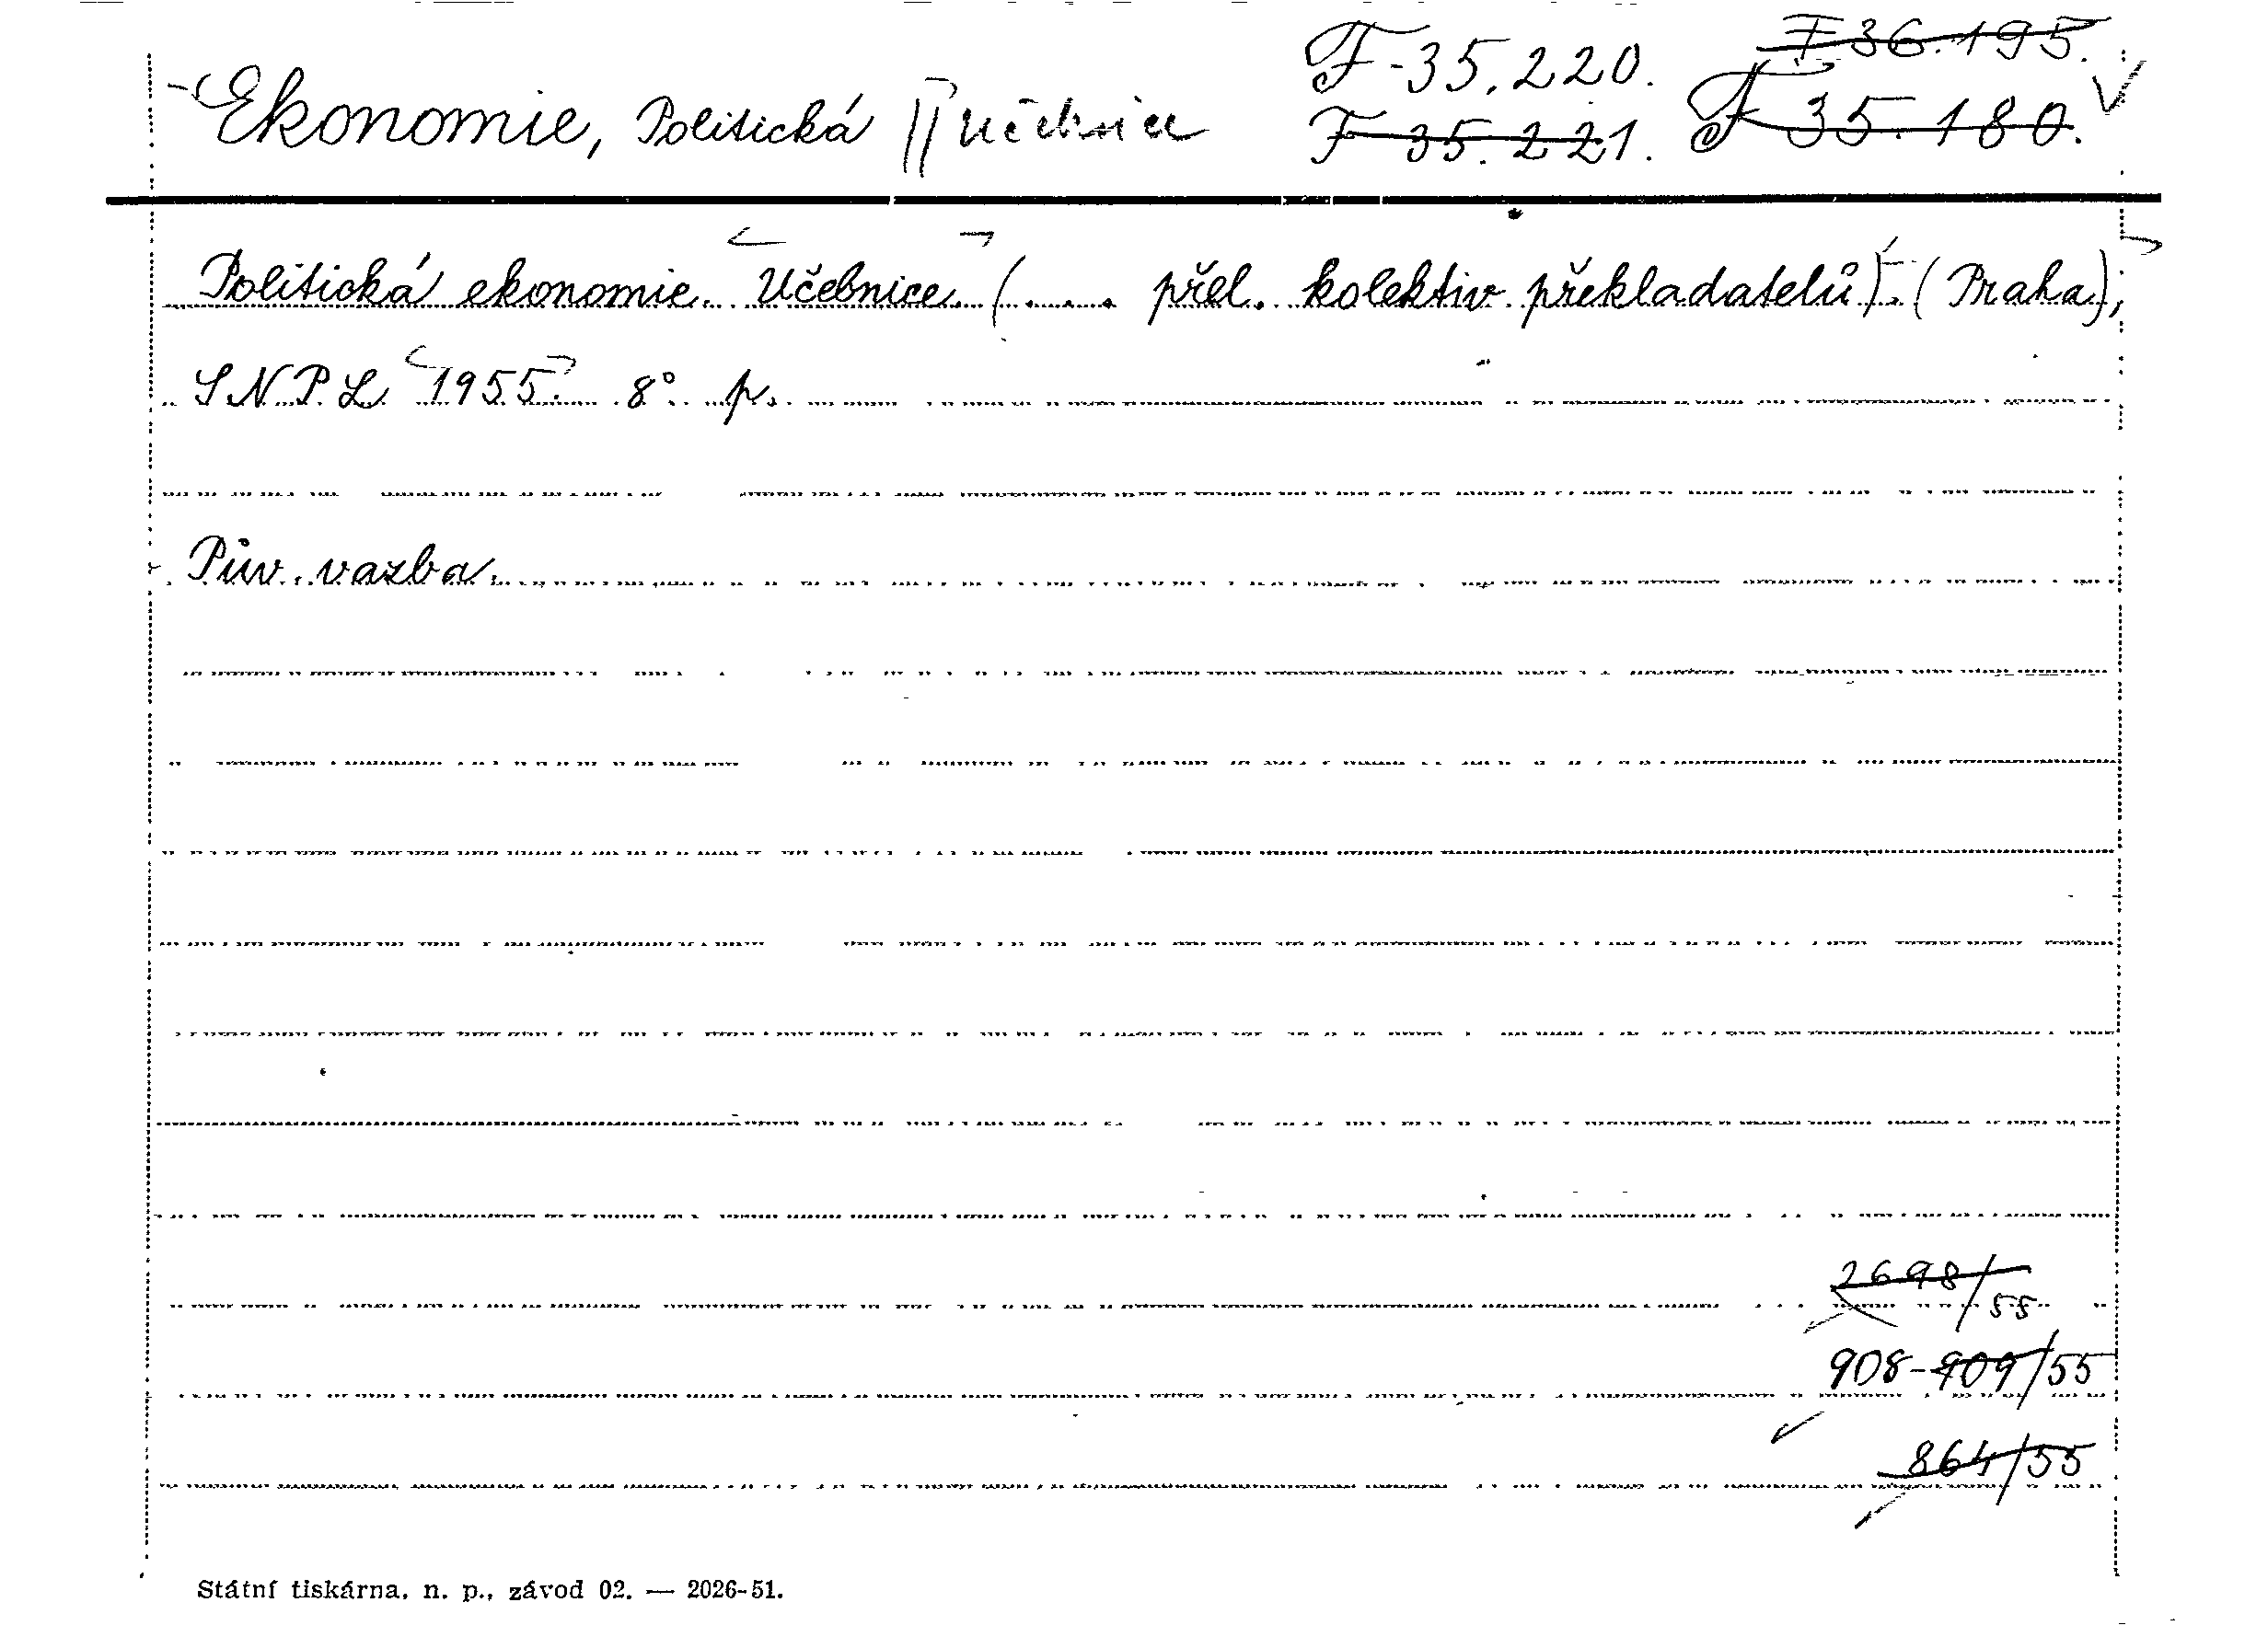 F 36.195.
Ekonomie, Politická || učebnice F-35.220.
F 35.221. F 35.180.
Politická ekonomie. Učebnice. (... přel. kolektiv překladatelů). (Praha),
SNPL 1955. 8° p.
Pův. vazba.
2698/55
908-909/55
864/55
Státní tiskárna, n. p., závod 02. — 2026-51.